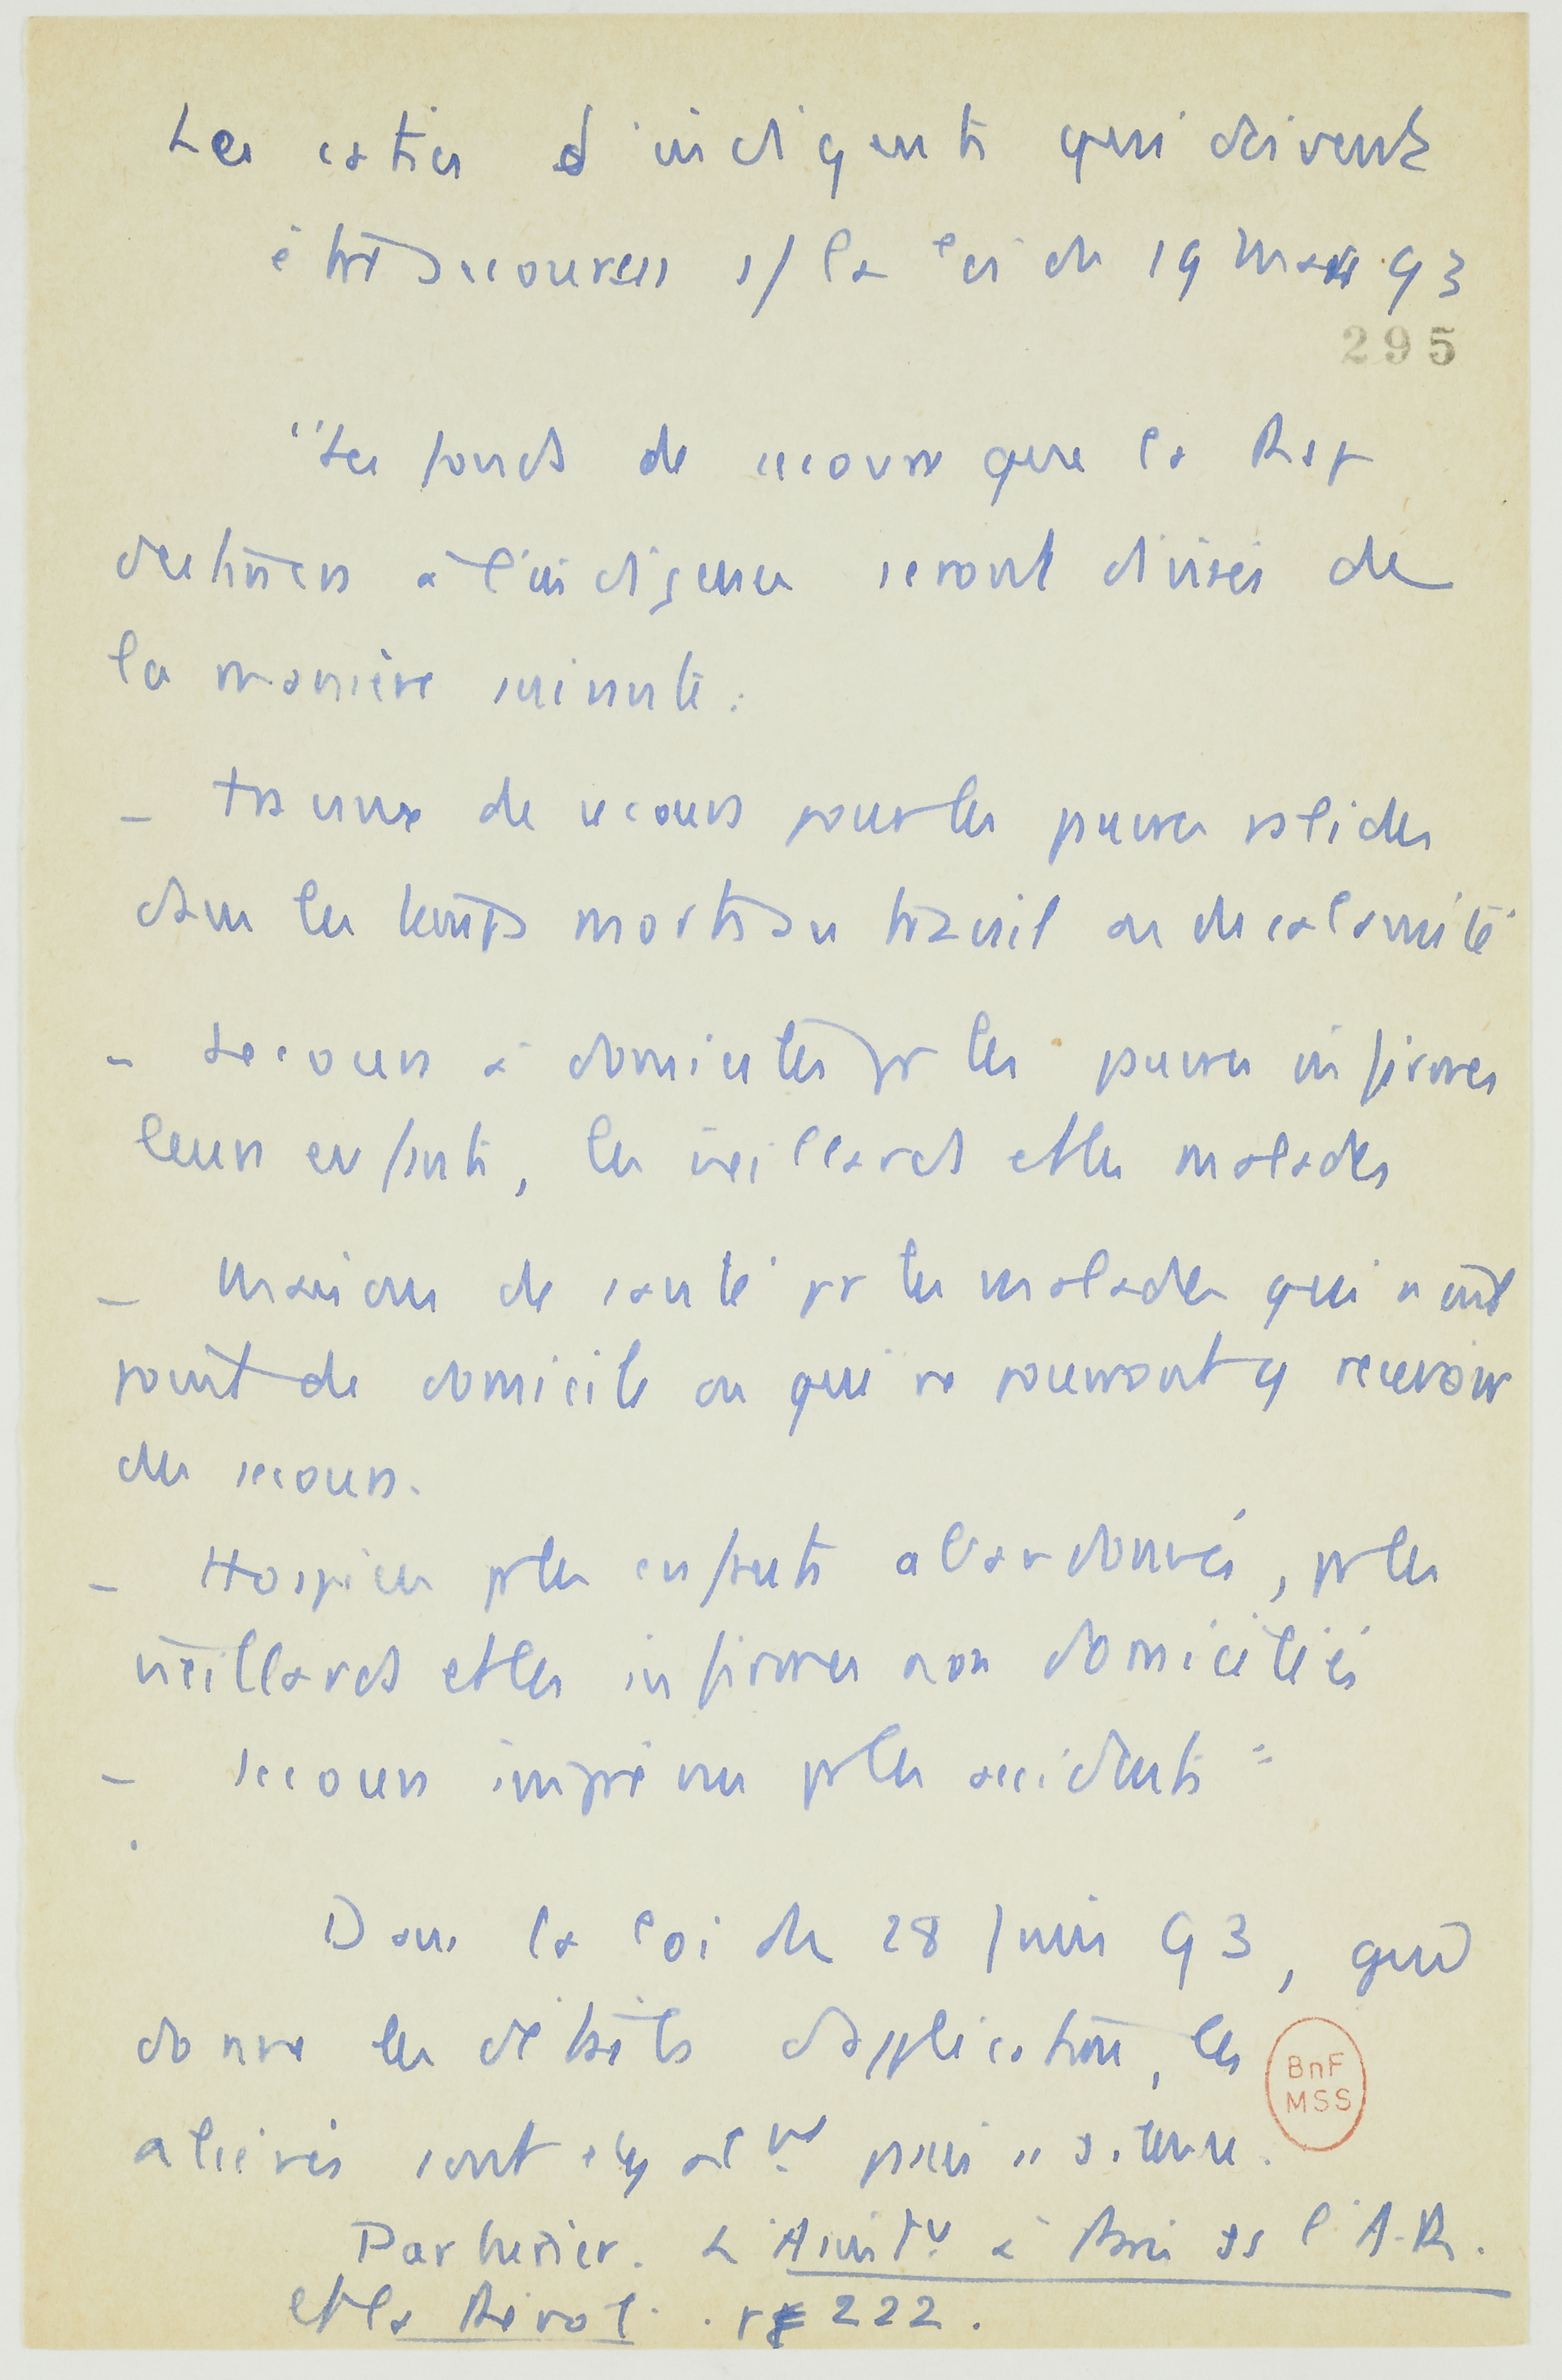 Les caties d'indigents qui doivent
être secourus s/ la loi du 19 Mars 93
295
"Les fonds de secours que la Rep
destinera à l'indigence seront divisés de
la manière suivante :
– travaux de secours pour les pauvres valides
dans les temps morts au travail ou de calamité
– Secours à domicile pr les pauvres infirmes
leurs enfants, les vieillards et les malades
– Maisons de santé pr les malades qui n'ont
point de domicile ou qui ne pourront y recevoir
des secours.
– Hospices pr les enfants abandonnés, pr les
vieillards et les infirmes non domiciliés
– secours imprévus pr les accidents"
Dans la loi du 28 Juin 93, qui
donne les détails d'application, les
aliénés sont également pris en
Parturier. L'Assist à Paris ss l'A.R.
et la Révol. . p 222.
BnF
MSS